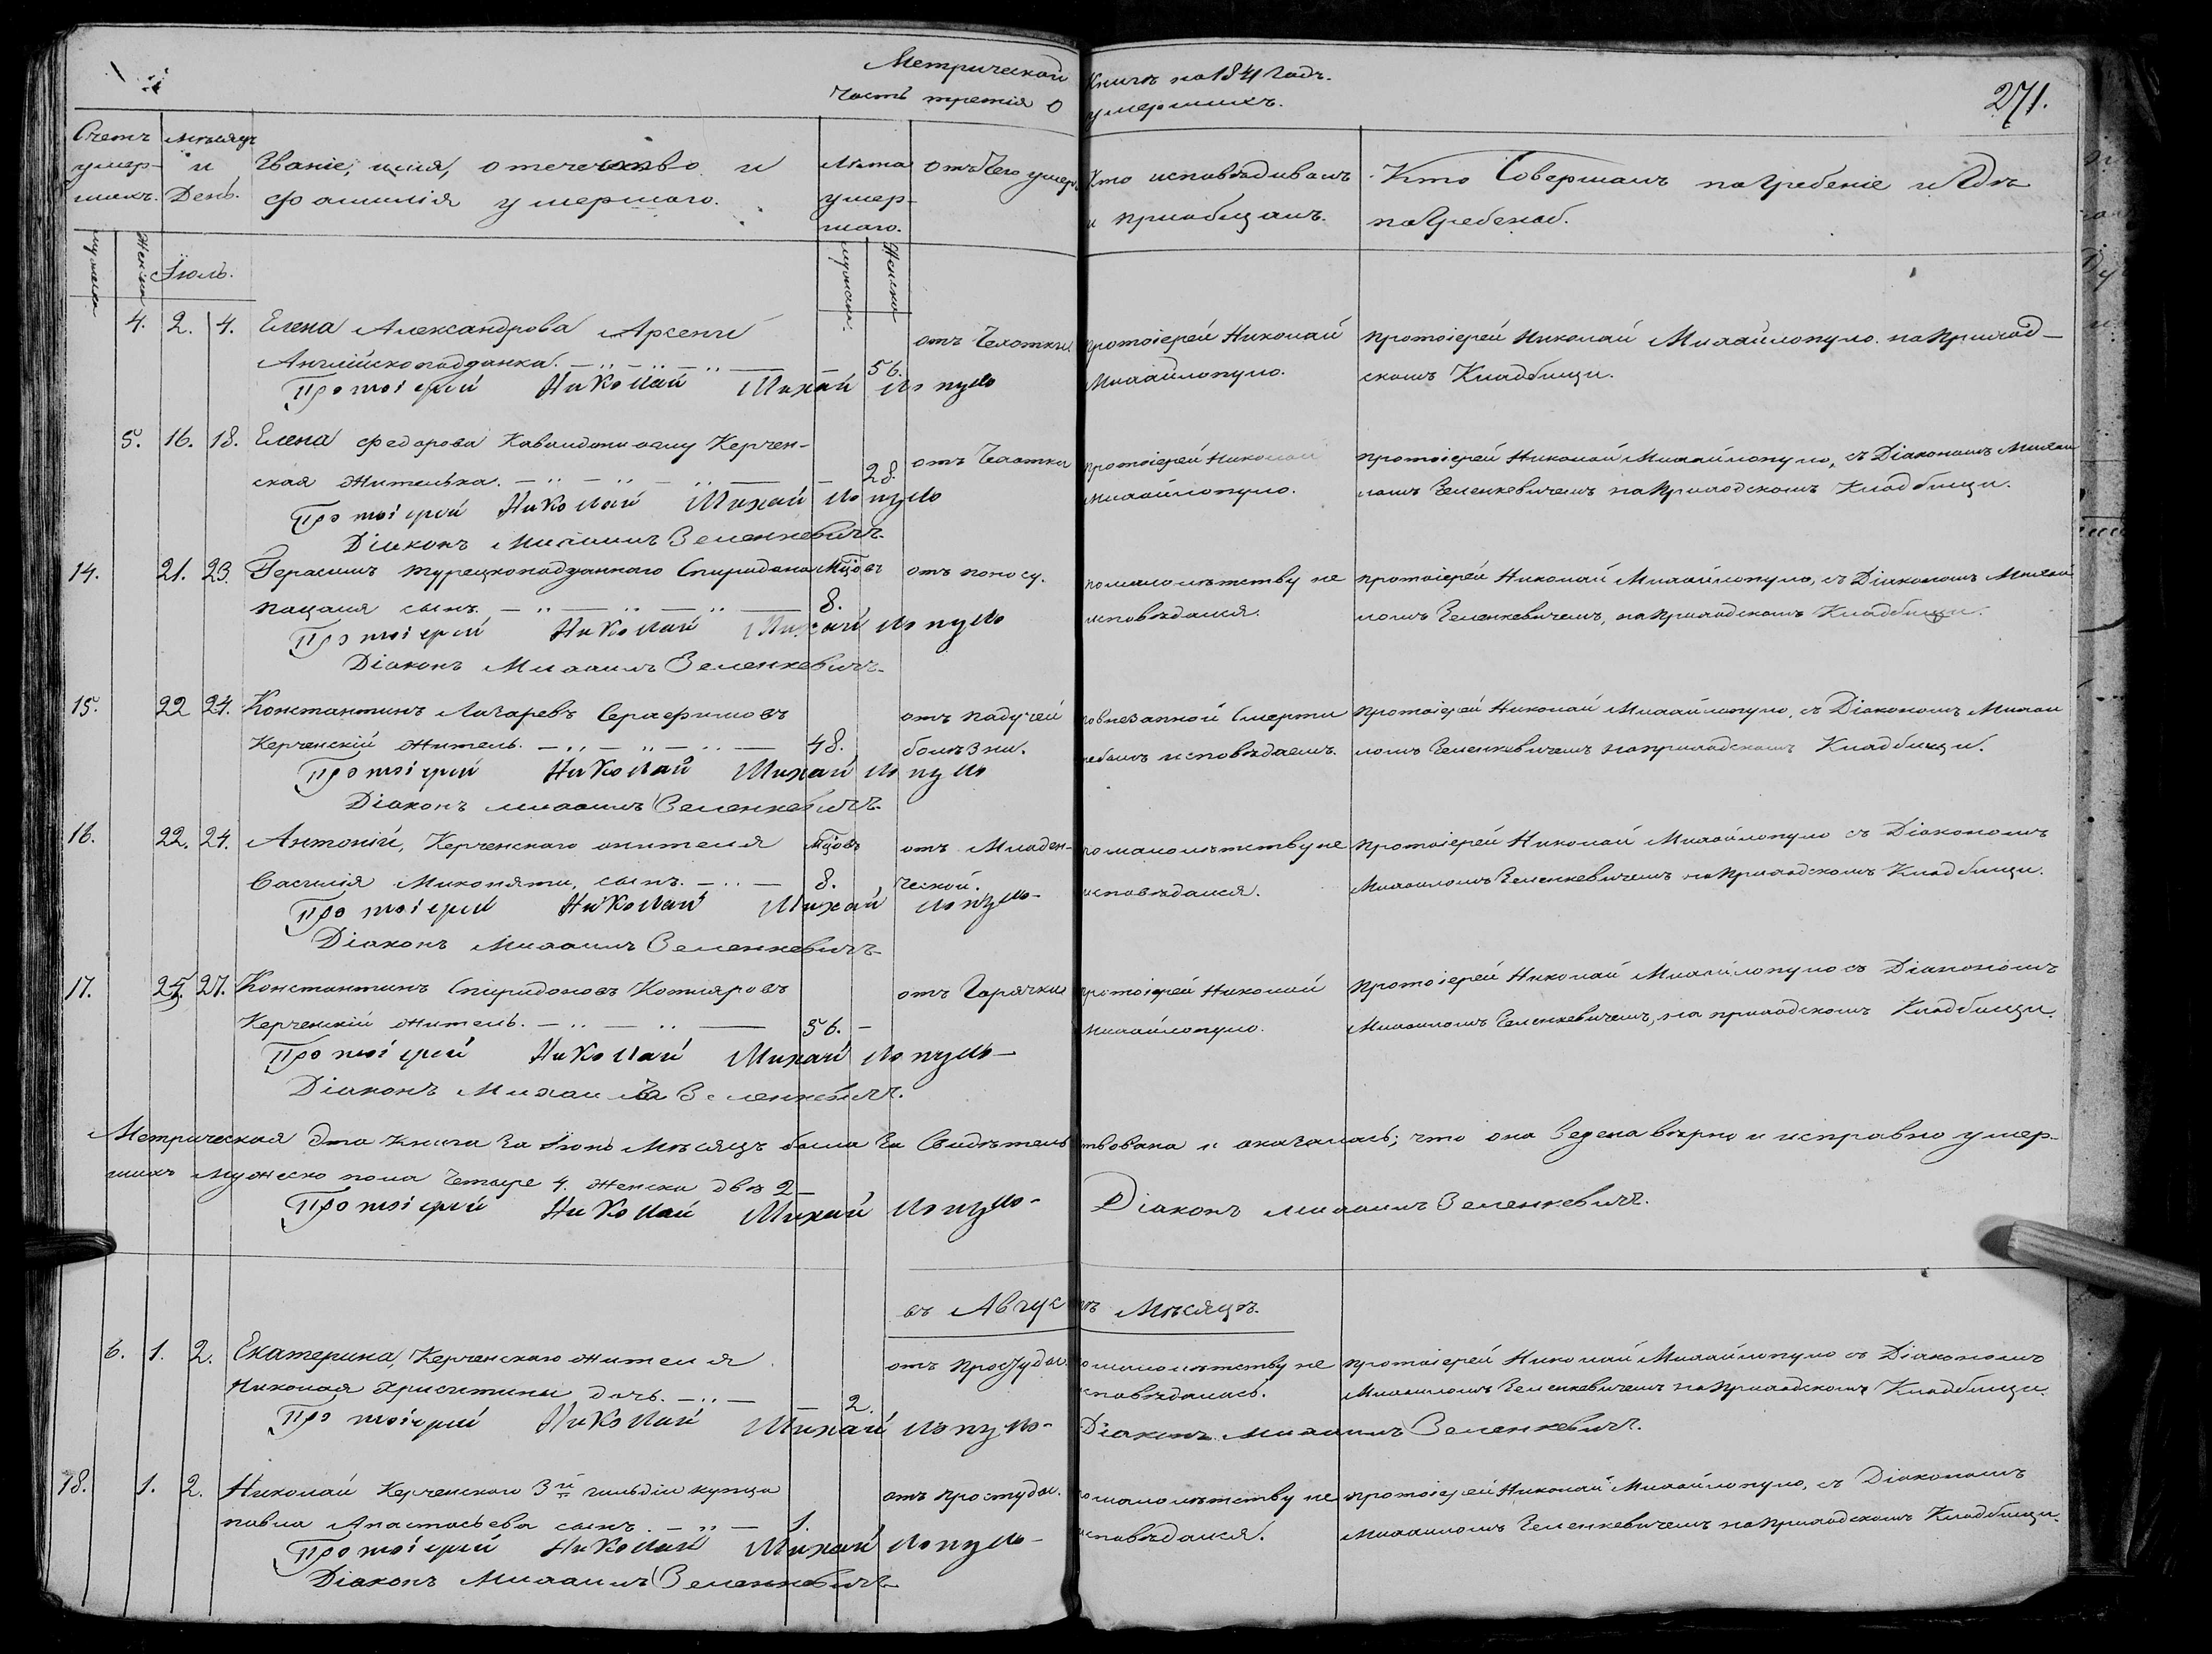 Метрической Книги на 1841 Годъ.
Часть третія о умершихъ.
271.
Счетъ умер-шихъ.
Мѣсяцъ и День.
Званіе, имя, отечество и фамилія умершаго.
Лѣта умер-шаго.
Отъ Чего умеръ
Кто исповѣдивалъ и пріобщалъ.
Кто Совершалъ погребеніе и Гдѣ погребенъ.
мужеска
женска
Іюль.
мужеска
Женска
4. 2. 4. Елена Александрова Арсени
Англійскоподданка. 56.
отъ Чехотки
протоіерей Николай
Михайлопуло.
протоіерей Николай Михайлопуло. на приход-
скомъ Кладбищи.
Протоіерей Николай Михайлопуло
5. 16. 18. Елена Федорова Керчен-
ская жителька. 28.
отъ Чехотки
протоіерей Николай
Михайлопуло.
протоіерей Николай Михайлопуло, съ Діакономъ Михаи
ломъ Зеленкевичемъ на приходскомъ Кладбищи.
Протоіерей Николай Михайлопуло
Діаконъ Михаилъ Зеленкевичъ
14. 21. 23. Герасимъ турецкоподданнаго Спиридона мцовъ
сынъ. 8.
отъ поносу.
по малолѣтству не
исповѣдался.
протоіерей Николай Михайлопуло, съ Діакономъ Михаи
ломъ Зеленкевичемъ, на приходскомъ Кладбищи.
Протоіерей Николай Михайлопуло
Діаконъ Михаилъ Зеленкевичъ
15. 22 24. Константинъ Лазаревъ Серафимовъ
Керченскій житель. 48.
отъ падучей
болѣзни.
по внезапной Смерти
небылъ исповѣдаемъ.
протоіерей Николай Михайлопуло, съ Діакономъ Михаи
ломъ Зеленкевичемъ на приходскомъ Кладбищи.
Протоіерей Николай Михайлопуло
Діаконъ Михаилъ Зеленкевичъ
16. 22. 24. Антоній, Керченскаго жителя мцовъ
Василія сынъ. 8.
отъ Младен-
ческой.
по малолѣтству не
исповѣдался.
протоіерей Николай Михайлопуло съ Діакономъ
Михаиломъ Зеленкевичемъ на приходскомъ Кладбищи.
Протоіерей Николай Михайлопуло
Діаконъ Михаилъ Зеленкевичъ
17. 25. 27. Константинъ Спиридоновъ Котляровъ
Керченскій житель. 56.
отъ Горячки
протоіерей Николай
Михайлопуло.
протоіерей Николай Михайлопуло съ Діакономъ
Михаиломъ Зеленкевичемъ, на приходскомъ Кладбищи.
Протоіерей Николай Михайлопуло
Діаконъ Михаилъ Зеленкевичъ.
Метрическая Эта книга За Мѣсяцъ была За Свидѣтельствована и оказалась; что она Ведена вѣрно и исправно умер-
шихъ мужеско пола Четыре 4. женска двѣ 2
Протоіерей Николай Михайлопуло
Діаконъ Михаилъ Зеленкевичъ.
въ Августъ Мѣсяцъ.
6. 1. 2. Екатерина, Керченскаго жителя
Николая дочь. 2.
отъ простуды.
по малолѣтству не
исповѣдалась.
протоіерей Николай Михайлопуло съ Діакономъ
Михаиломъ Зеленкевичемъ на приходскомъ Кладбищи.
Протоіерей Николай Михайлопуло
Діаконъ Михаилъ Зеленкевичъ.
18. 1. 2. Николай Керченскаго 3й гильдіи купца
павла Анастасьева сынъ. 1.
отъ простуды.
по малолѣтству не
исповѣдался.
протоіерей Николай Михайлопуло, съ Діакономъ
Михаиломъ Зеленкевичемъ на приходскомъ Кладбищи.
Протоіерей Николай Михайлопуло
Діаконъ Михаилъ Зеленкевичъ